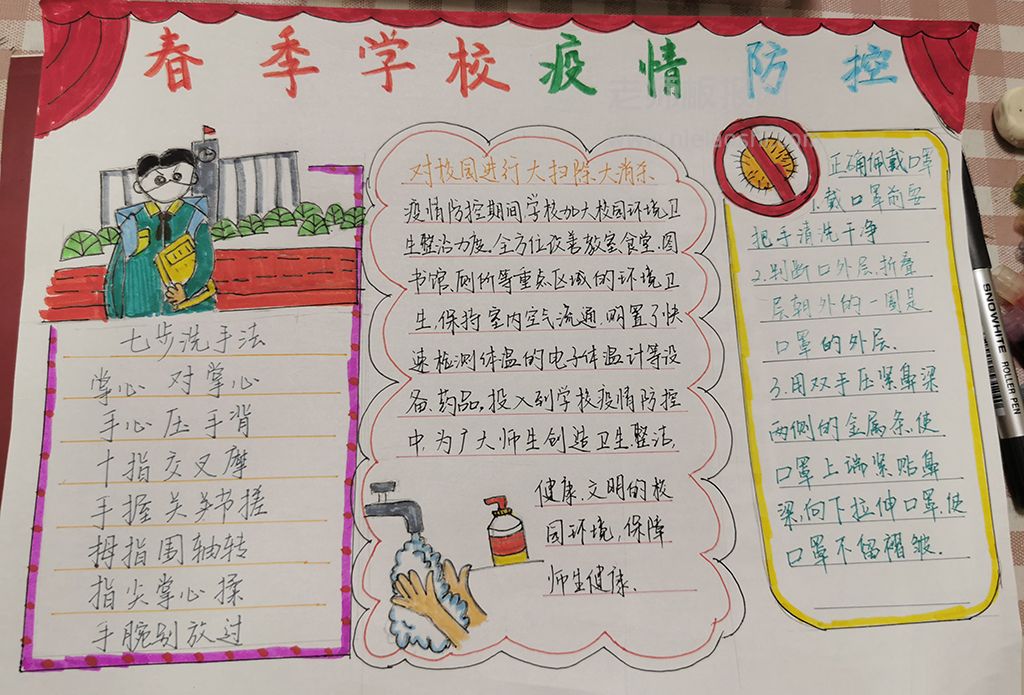 春季学校疫情防控
七步洗手法
掌心对掌心
手心压手背
十指交叉摩
手握关节搓
拇指围轴转
指尖掌心揉
手腕别放过
对校园进行大扫除大消杀
疫情防控期间学校加大校园环境卫
生整治力度.全方位改善教室食堂.图
书馆.厕所等重点区域的环境卫
生.保持室内空气流通.购置了快
速检测体温的电子体温计等设
备.药品,投入到学校疫情防控
中.为广大师生创造卫生.整洁.
健康.文明的校
园环境,保障
师生健康.
正确佩戴口罩
1.戴口罩前要
把手清洗干净
2.判断口外层.折叠
层朝外的一面是
口罩的外层.
3.用双手压紧鼻梁
两侧的金属条.使
口罩上端紧贴鼻
梁,向下拉伸口罩.使
口罩不留褶皱.
SNOWHITE ROLLER PEN